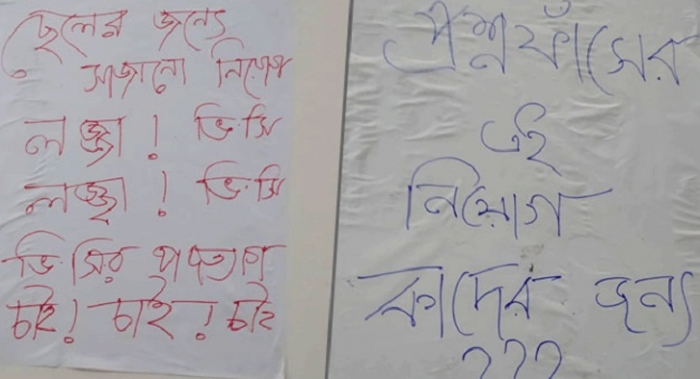 ছেলের জন্যে
সাজানো নিয়োগ
লজ্জা ! ভি.সি
লজ্জা ! ভি.সি
ভি.সির পদত্যাগ
চাই ! চাই ! চাই
প্রশ্নফাঁসের
এই
নিয়োগ
কাদের জন্য
???